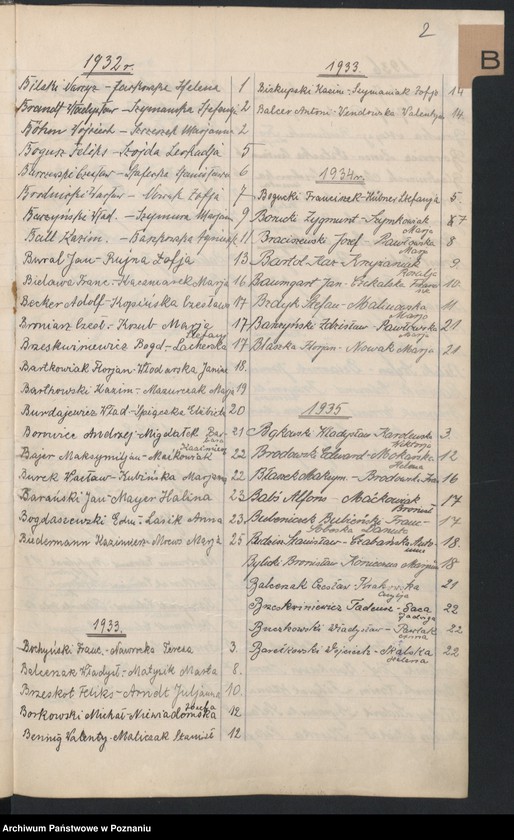 2
B
1932 r.
Bilski Kazim - Jackowska Helena 1
Brandt Władysław - Szymańska Stefanja 2
Böhm Wojciech - Marjanna 2
Bogusz Feliks - Szojda Leokadja 5
Czesław - Stanisława 6
Wacław - Nowak Zofja 7
Burzyński Wład. - Szymura Marjan 9
Ball Kazim. - Raszkowska 11
Bural Jan - Rujna Zofja 13
Bielawa Franc - Kaczmarek Marja 16
Becker Adolf - Kopczińska Czesława 17
Broniarz Czesł - Kozub Marja 17
Brzeskwiniewicz Bogd - Lacherska Stefanja 17
Bartkowiak Florjan - Włodarska Janina 18.
Bartkowski Kazim - Mazurczak Marja 19
Burdajewicz Wład - Elżbieta 20
Borowicz Andrzej - Migdałek Barbara 21
Bajer Maksymiljan - Maćkowiak Kazimiera 22
Burek Wacław - Kubińska Marjanna 22
Barański Jan - Mayer Halina 23
Bogdaszewski Edm - Lasik Anna 23
Biedermann Kazimierz - Marja 25
1933.
Bochyński Franc - Nawrocka Teresa 3.
Balcerzak Władysł - Matysik Marta 8.
Brzeskot Feliks - Arndt Juljanna 10.
Borkowski Michał - Niewiadomska Józefa 12
Bennig Walenty - Maliczak Stanisł 12
1933.
Biskupski Kazim - Szymaniak Zofja 14
Balcer Antoni - Kendrowska Walentyna 14.
1934 r.
Bogucki Franciszek - Hübner Stefanja 5.
Boruta Zygmunt - Szymkowiak Marja 7
Braciszewski Józef - Pawłowska Marja 8
Bartol Kaz - Krzyżaniak Rozalja 9.
Baumgart Jan - 10.
Brdyk Stefan - Malinowska Marja 11
Bakzyński Zdzisław - Pawłowska Marja 21
Błaszka Florjan - Nowak Marja 21
1935
Bąkowski Władysław Karolewska Wiktorja 3.
Brodowski Edward - Mokańska Helena 12
Błaszek Maksym - 16
Balis Alfons - Maćkowiak Bronisł 17
Franc - Danuta 17
Budzin Stanisław - Grabańska Antonina 18.
Bylicki Bronisław Marjan 18
Balcerzak Czesław 21
Brzeskwiniewicz Tadeusz - Gaca Jadwiga 22
Buczkowski Władysław - Pawlak 22
Barcikowski Wojciech - Skalska Helena 22
Archiwum Państwowe w Poznaniu